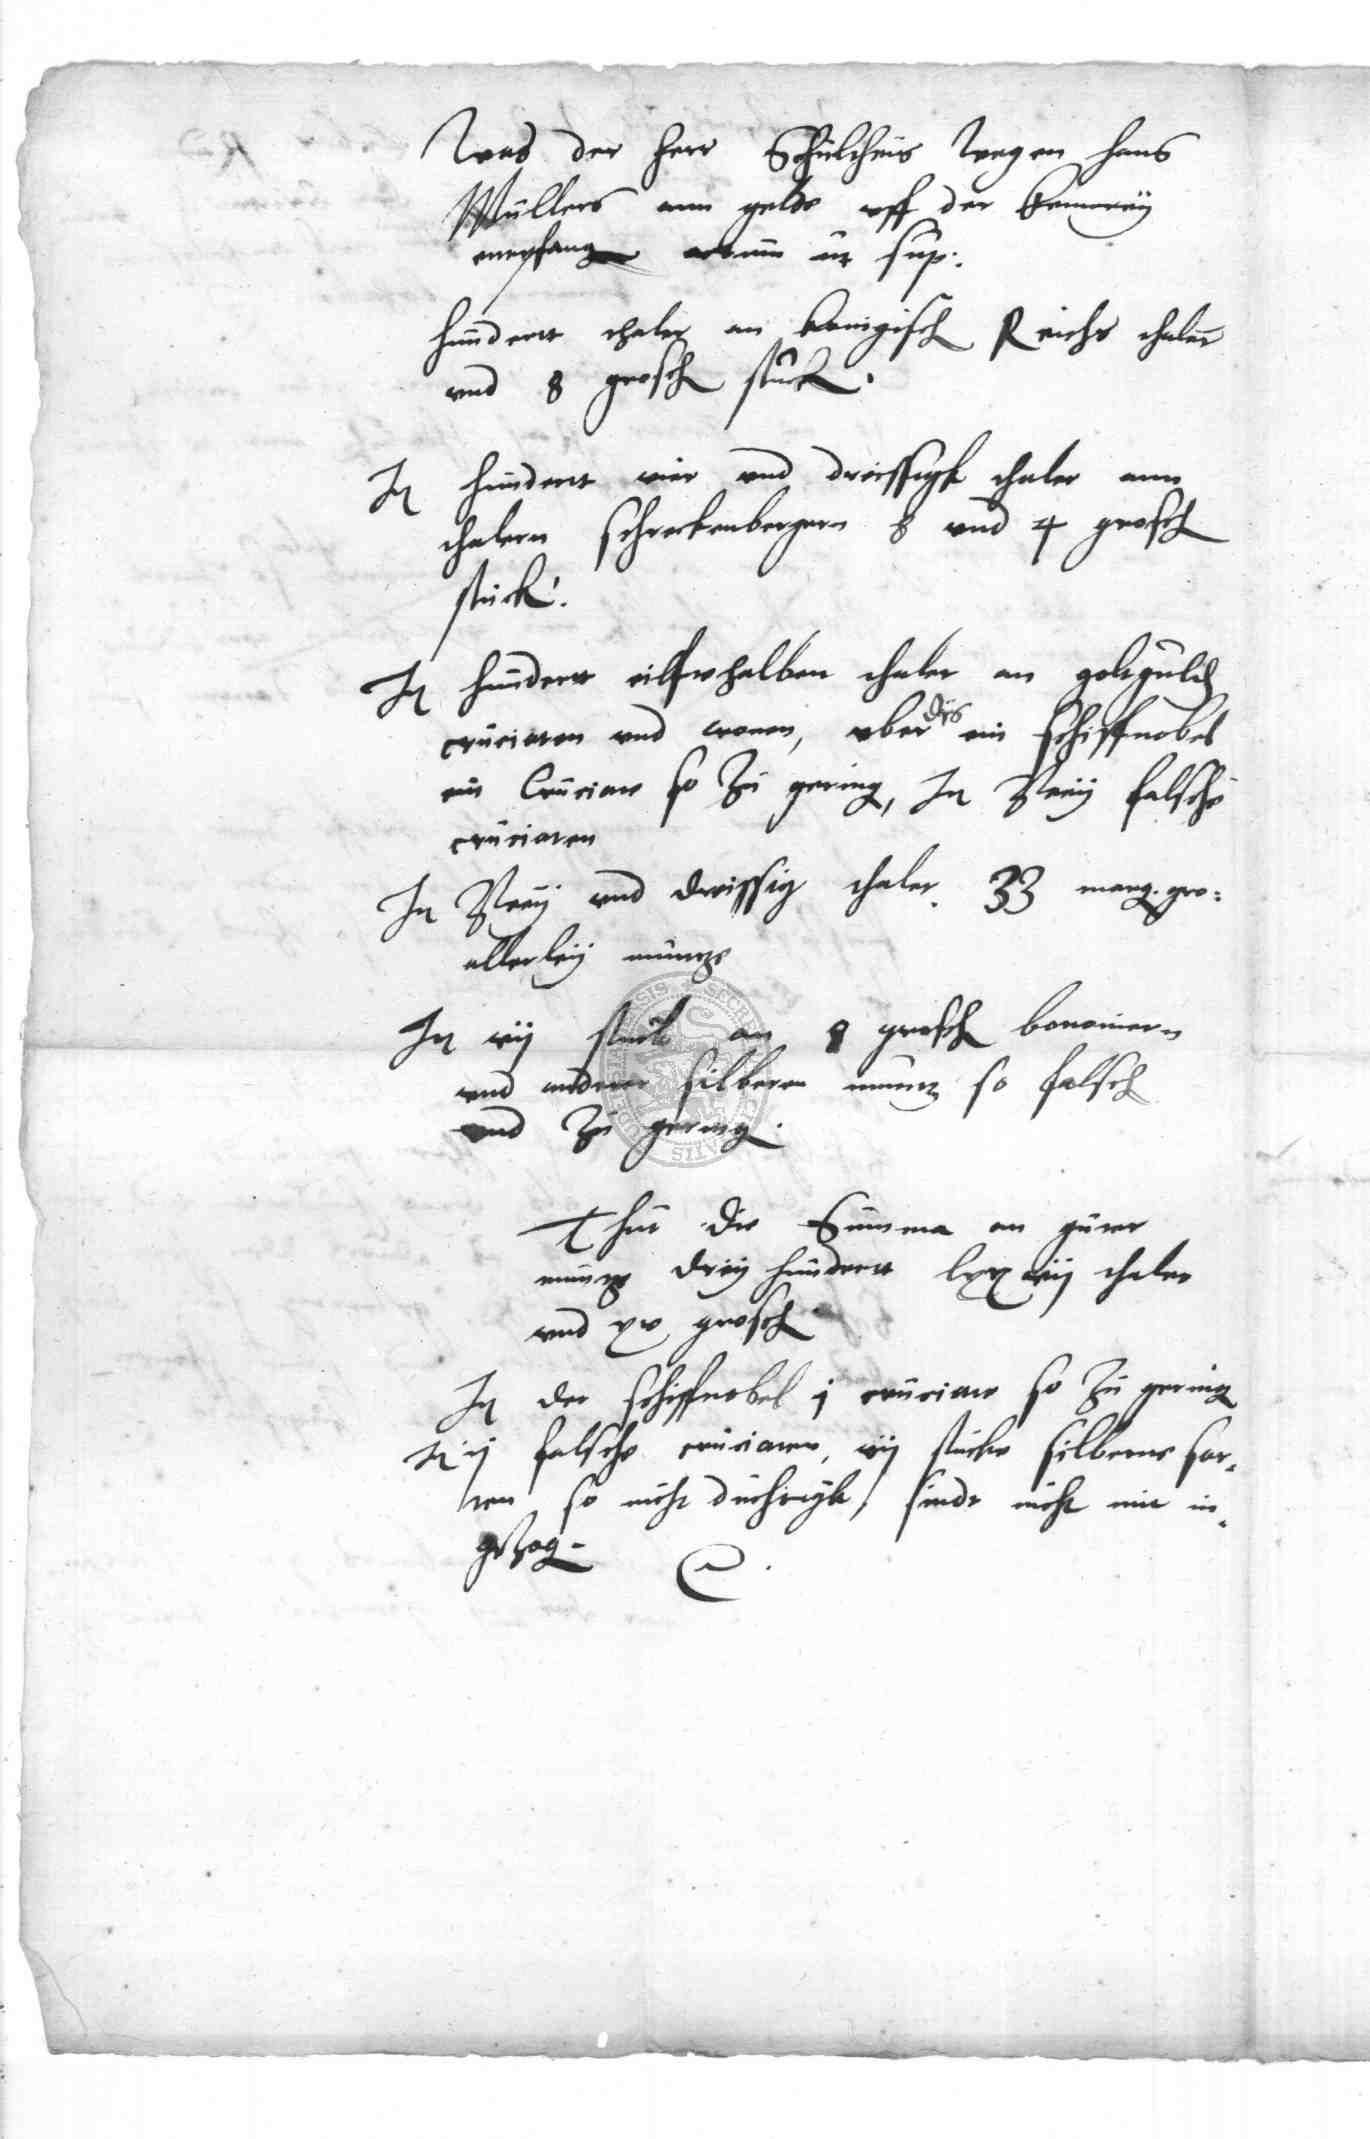 Was der herr Schultheis wegen hans
Mullers ann gelde uff der kemereÿ
empfang ut sup:.
hundert thaler an konigisch Reichs thaler
und 8 grosch stuck.
It hundert vier und dreissigk thaler ann
thalern schreckenbergern 8 und 4 grosch
stuck.
It hundert eilftehalben thaler an goltguld
cruciaten und cronen, uber dis ein schiffnobel
ein Cruciate so zu gering, It zweÿ falsche
cruciaten
It zweÿ und dreissig thaler. 33 marg. gro:
allerleÿ muntze
It vij stuck an 8 grosch
und anderer silberen muntz so falsch
und zu gering.
Thut die Summa an guter
muntz dreÿ hundert lxxvij thaler
und xv grosch
It der schiffnobel j cruciate so zu gering
It ij falsche cruciaten, vij stucke silberne sor-
ten so nicht duchtigk, sindt nicht mit in-
gezog-